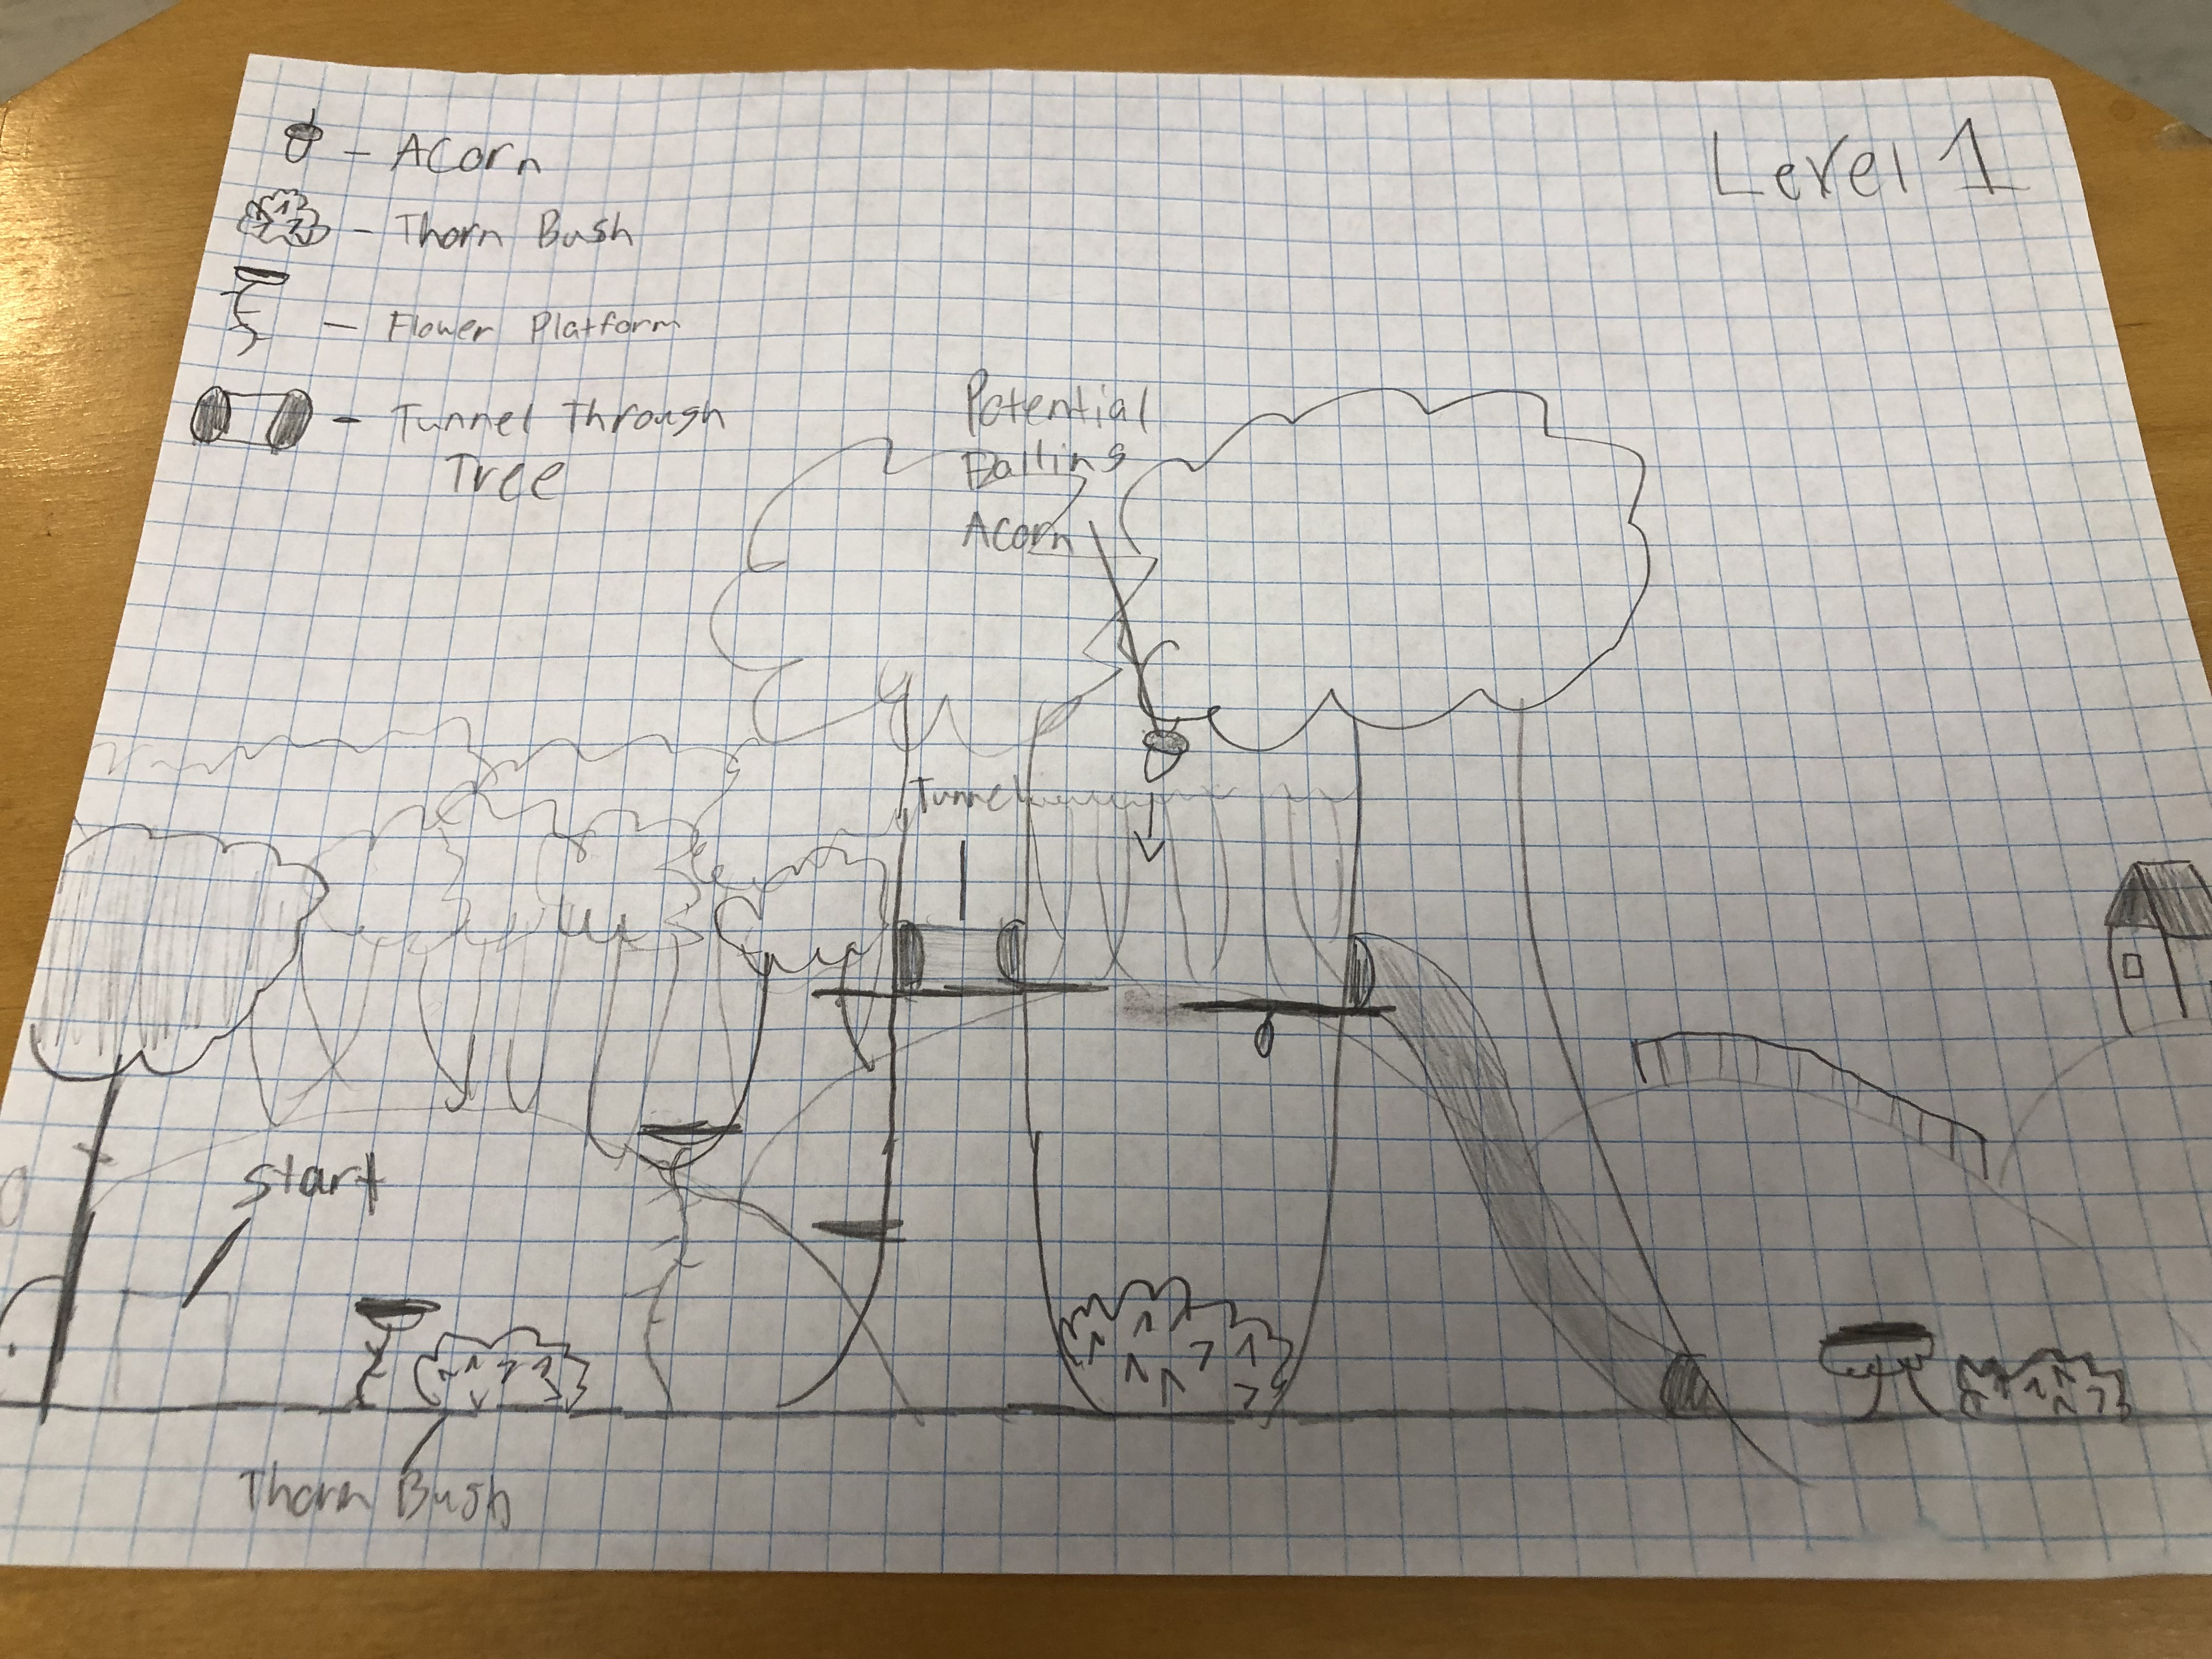 Level 1
- Acorn
- Thorn Bush
- Flower Platform
- Tunnel through
Tree
Potential
Falling
Acorn
Tunnel
Start
Thorn Bush